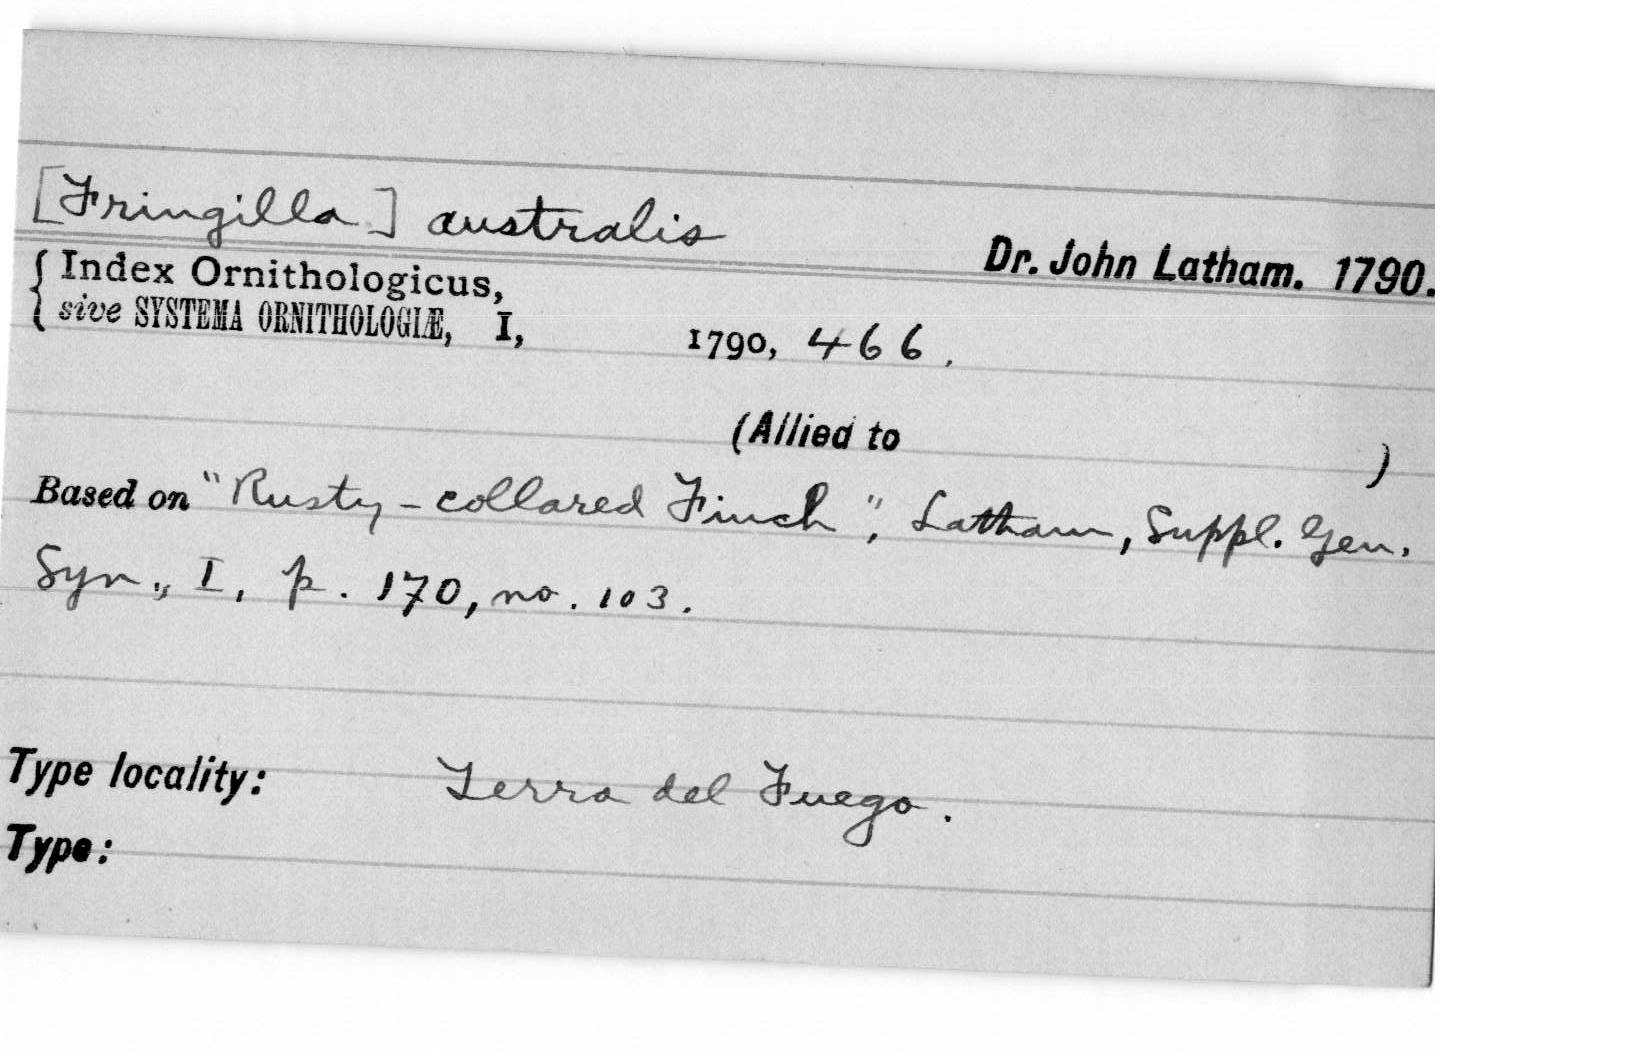 [Fringilla] australis
Dr. John Latham. 1790.
{ Index Ornithologicus,
sive SYSTEMA ORNITHOLOGIÆ, I, 1790, 466.
(Allied to )
Based on "Rusty-collared Finch", Latham, Suppl. Gen.
Syn., I, p. 170, no. 103.
Type locality: Terra del Fuego.
Type: